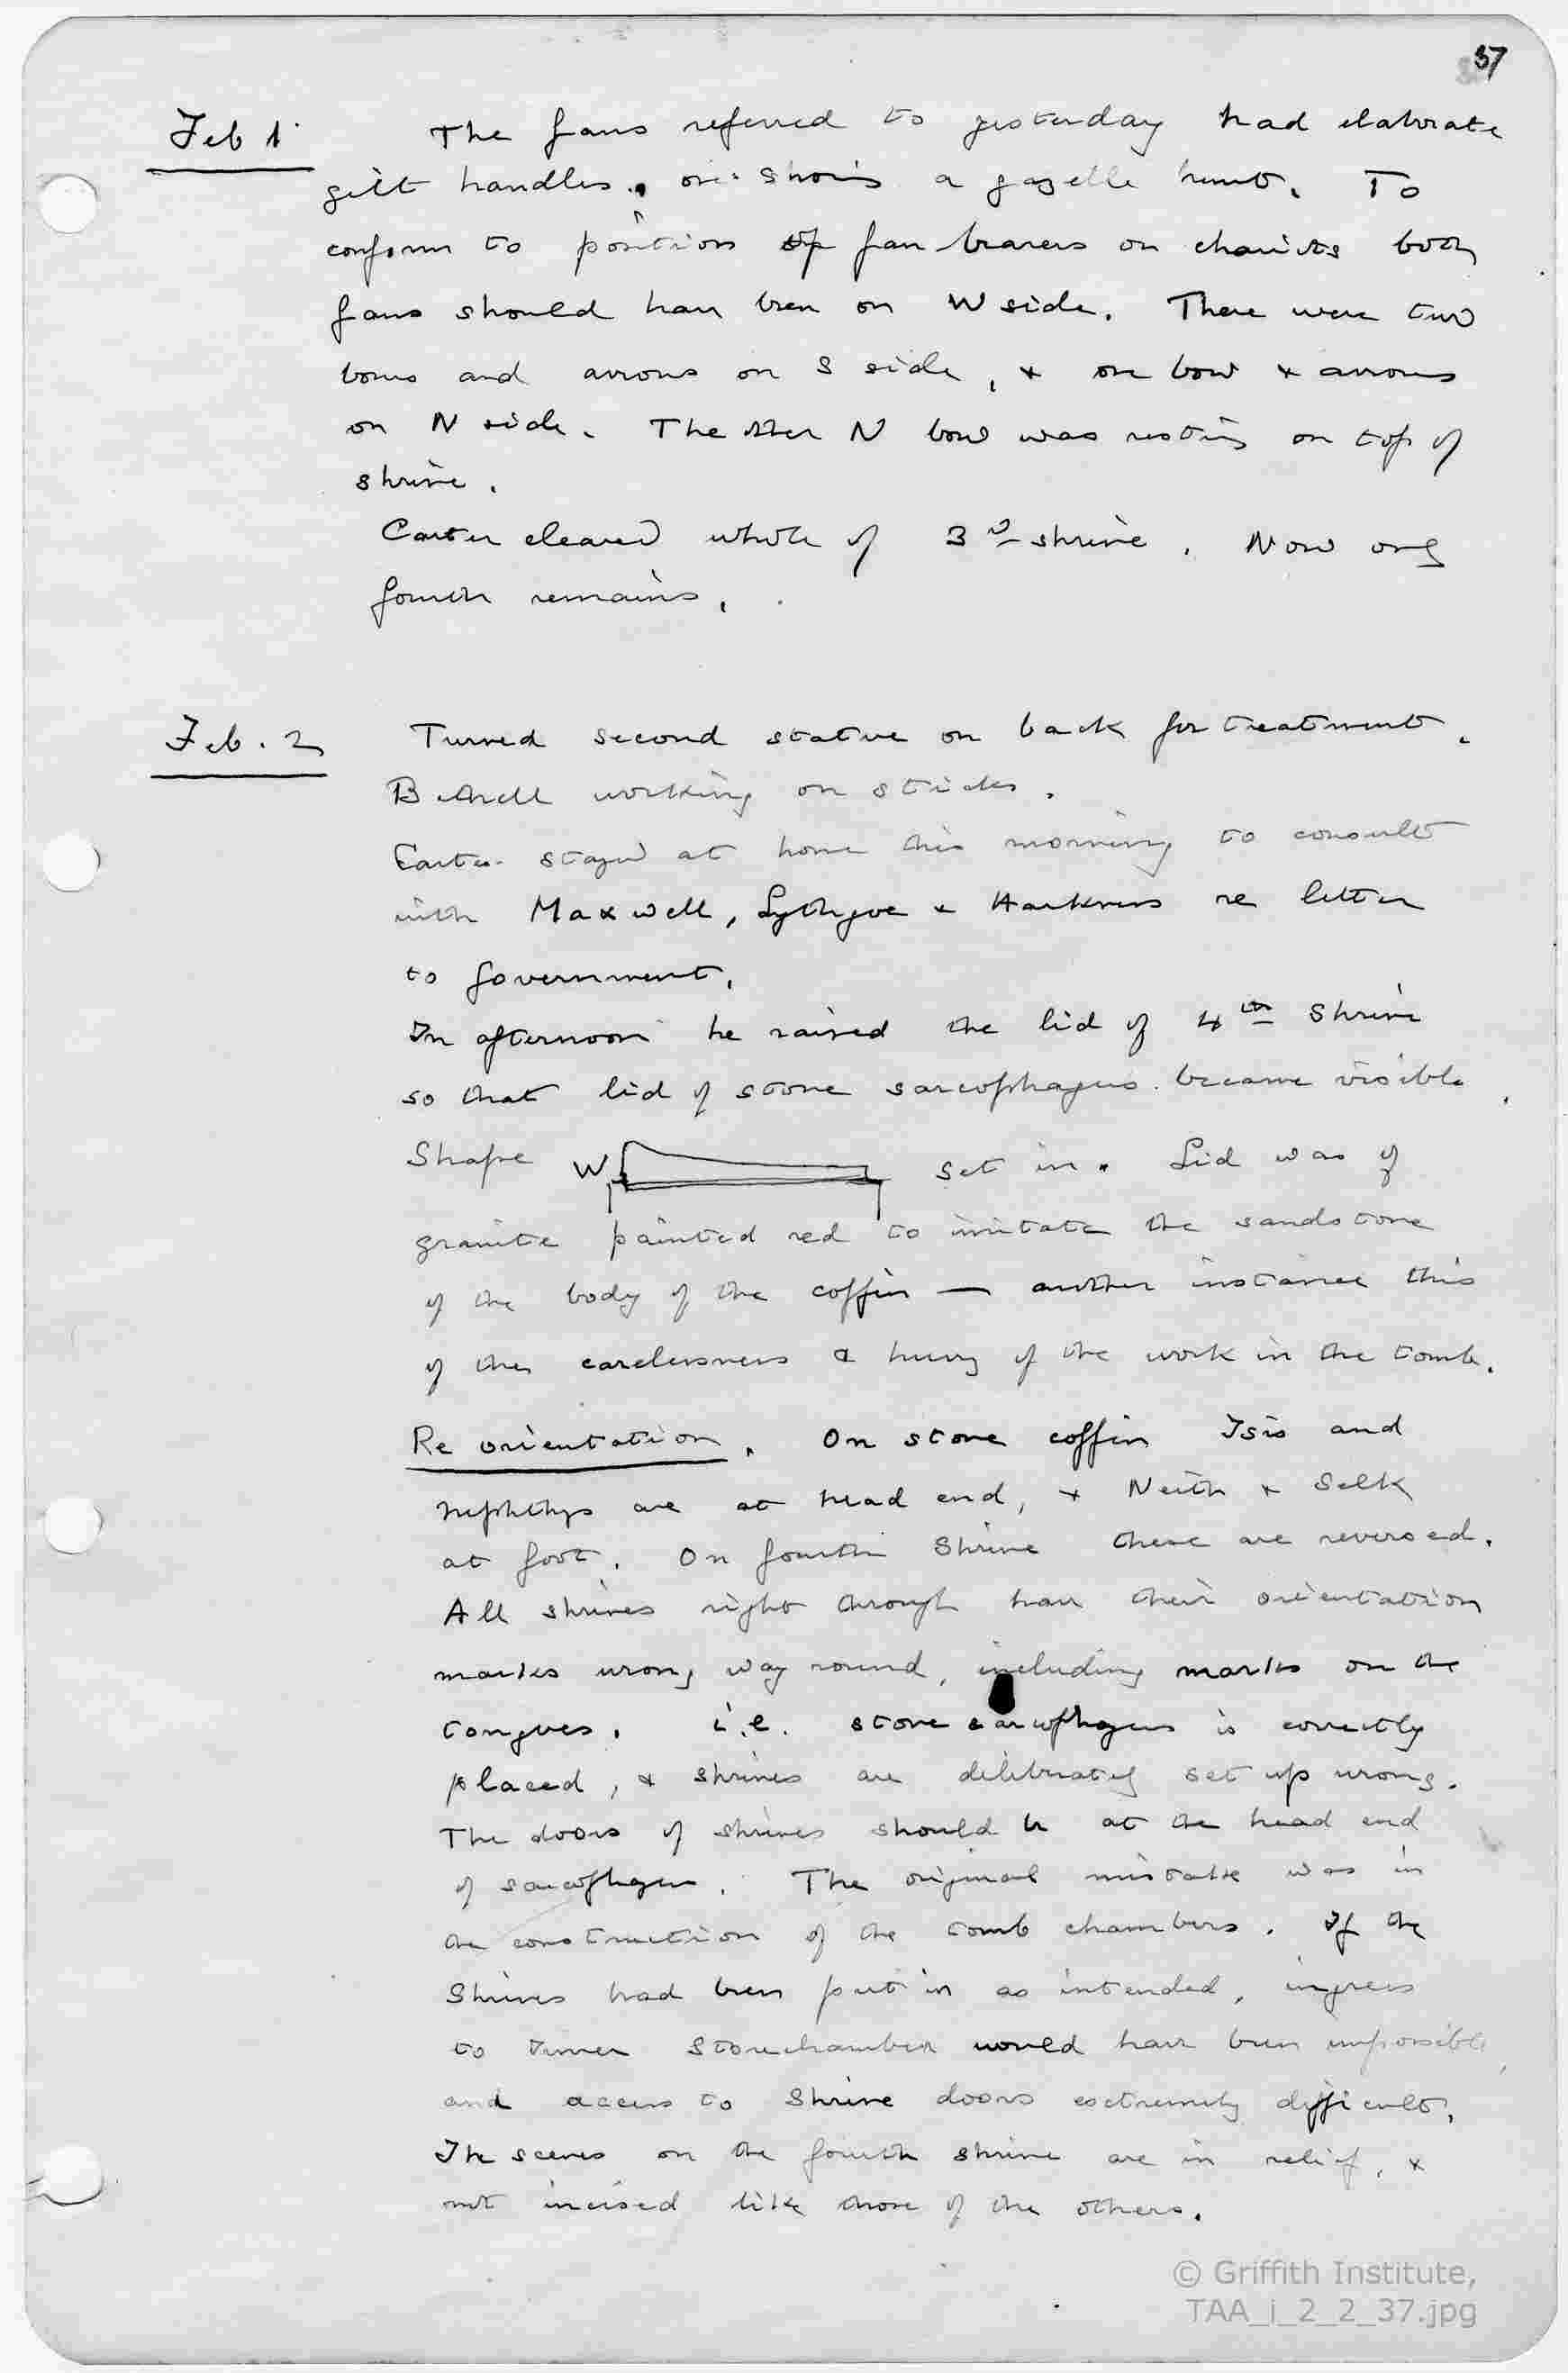 37
Feb 1. The fans referred to yesterday had elaborate
gilt handles, one showing a gazelle hunt. To
conform to position of fan bearers on chariots both
fans should have been on W side. There were two
bows and arrows on S side, & one bow & arrows
on N side. The other N bow was resting on top of
shrine.
Carter cleared whole of 3rd shrine. Now only
fourth remains.
Feb. 2 Turned second statue on back for treatment.
Bethell working on sticks.
Carter stayed at home this morning to consult
with Maxwell, Lythgoe & Harkness re letter
to Government.
In afternoon he raised the lid of 4th Shrine
so that lid of stone sarcophagus became visible.
Shape W set in. Lid was of
granite painted red to imitate the sandstone
of the body of the coffin — another instance this
of the carelessness & hurry of the work in the tomb.
Re orientation. On stone coffin Isis and
Nephthys are at head end, & Neith & Selk
at foot. On fourth Shrine these are reversed.
All shrines right through have their orientation
marks wrong way round, including marks on the
tongues. i.e. stone sarcophagus is correctly
placed, & shrines are deliberately set up wrong.
The doors of shrines should be at the head end
of sarcophagus. The original mistake was in
the construction of the tomb chambers. If the
Shrines had been put in as intended, ingress
to Inner Storechamber would have been impossible,
and access to Shrine doors extremely difficult.
The scenes on the fourth shrine are in relief, &
not incised like those of the others.
© Griffith Institute,
TAA_i_2_2_37.jpg